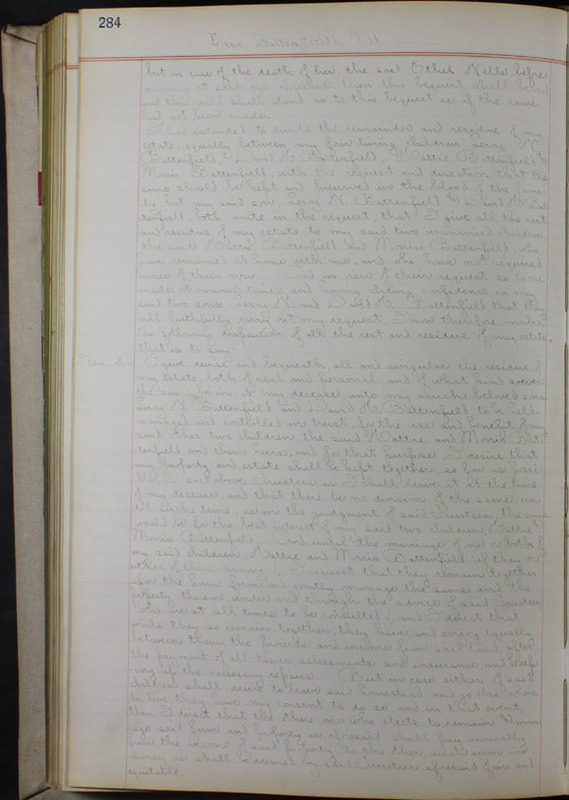 284
Battenfield's Will
but in case of the death of her, the said Ethel Wells, before
then this bequest shall
and this will shall stand as to this bequest as if the same
had not been made.
I had intended to divide the remainder and residue of my
estate, equally between my four living children,
Battenfield, David H. Battenfield, Mattie Battenfield &
Battenfield, with the request and direction that the
same should be kept and preserved in the blood of the fami-
ly, but my said sons, N. Battenfield & David H. Bat-
tenfield, both unite in the request, that I give all the rest
and residue of my estate to my said two unmarried children
the said Mattie Battenfield and Battenfield who
have remained at home with me, and who have not acquired
homes of their own. And in view of their request so to me
made at various times, and having abiding confidence in my
said two sons, N. and David H. Battenfield that they
will faithfully carry out my request, I now therefore make
the following disposition of all the rest and residue of my estate,
that is to say:
Item 3 - I give devise and bequeath, all and singular the residue of
my estate, both of real and personal, and of what kind soever
the same be in, at my decease, unto my much beloved sons
N. Battenfield and David H. Battenfield, to be held
managed and controlled in trust, for the use and benefit of my
said other two children the said Mattie and Bat-
tenfield, and their heirs, and for that purpose, I desire that
my property and estate shall be kept together, so far as possi-
ble as said above Trustees as I shall leave it at the time
of my decease, and that there be no division of the same un-
til such time, as in the judgment of said Trustees, the same
would be for the best interest of my said two children, Mattie &
Battenfield. And until the marriage of one or both of
my said children, Mattie and Battenfield (if they or
either of them marry), I request that they remain together
upon the home farm and jointly manage the same and the
property thereon, under and through the advice of said Trustees,
who are at all times to be consulted, and I direct that
while they so remain together, they have and enjoy equally
between them the proceeds and income from said land, after
the payment of all taxes assessments and insurance, and keep-
ing up the necessary repairs. But in case either of said
children shall desire to leave said homestead and go elsewhere
to live, they have my consent to do so and in that event,
then I direct that the other one who elects to remain & man-
age said farm and property as aforesaid shall pay annually
from the income of said property to the other such sum in
money as shall be deemed by said Trustees aforesaid fair and
equitable.